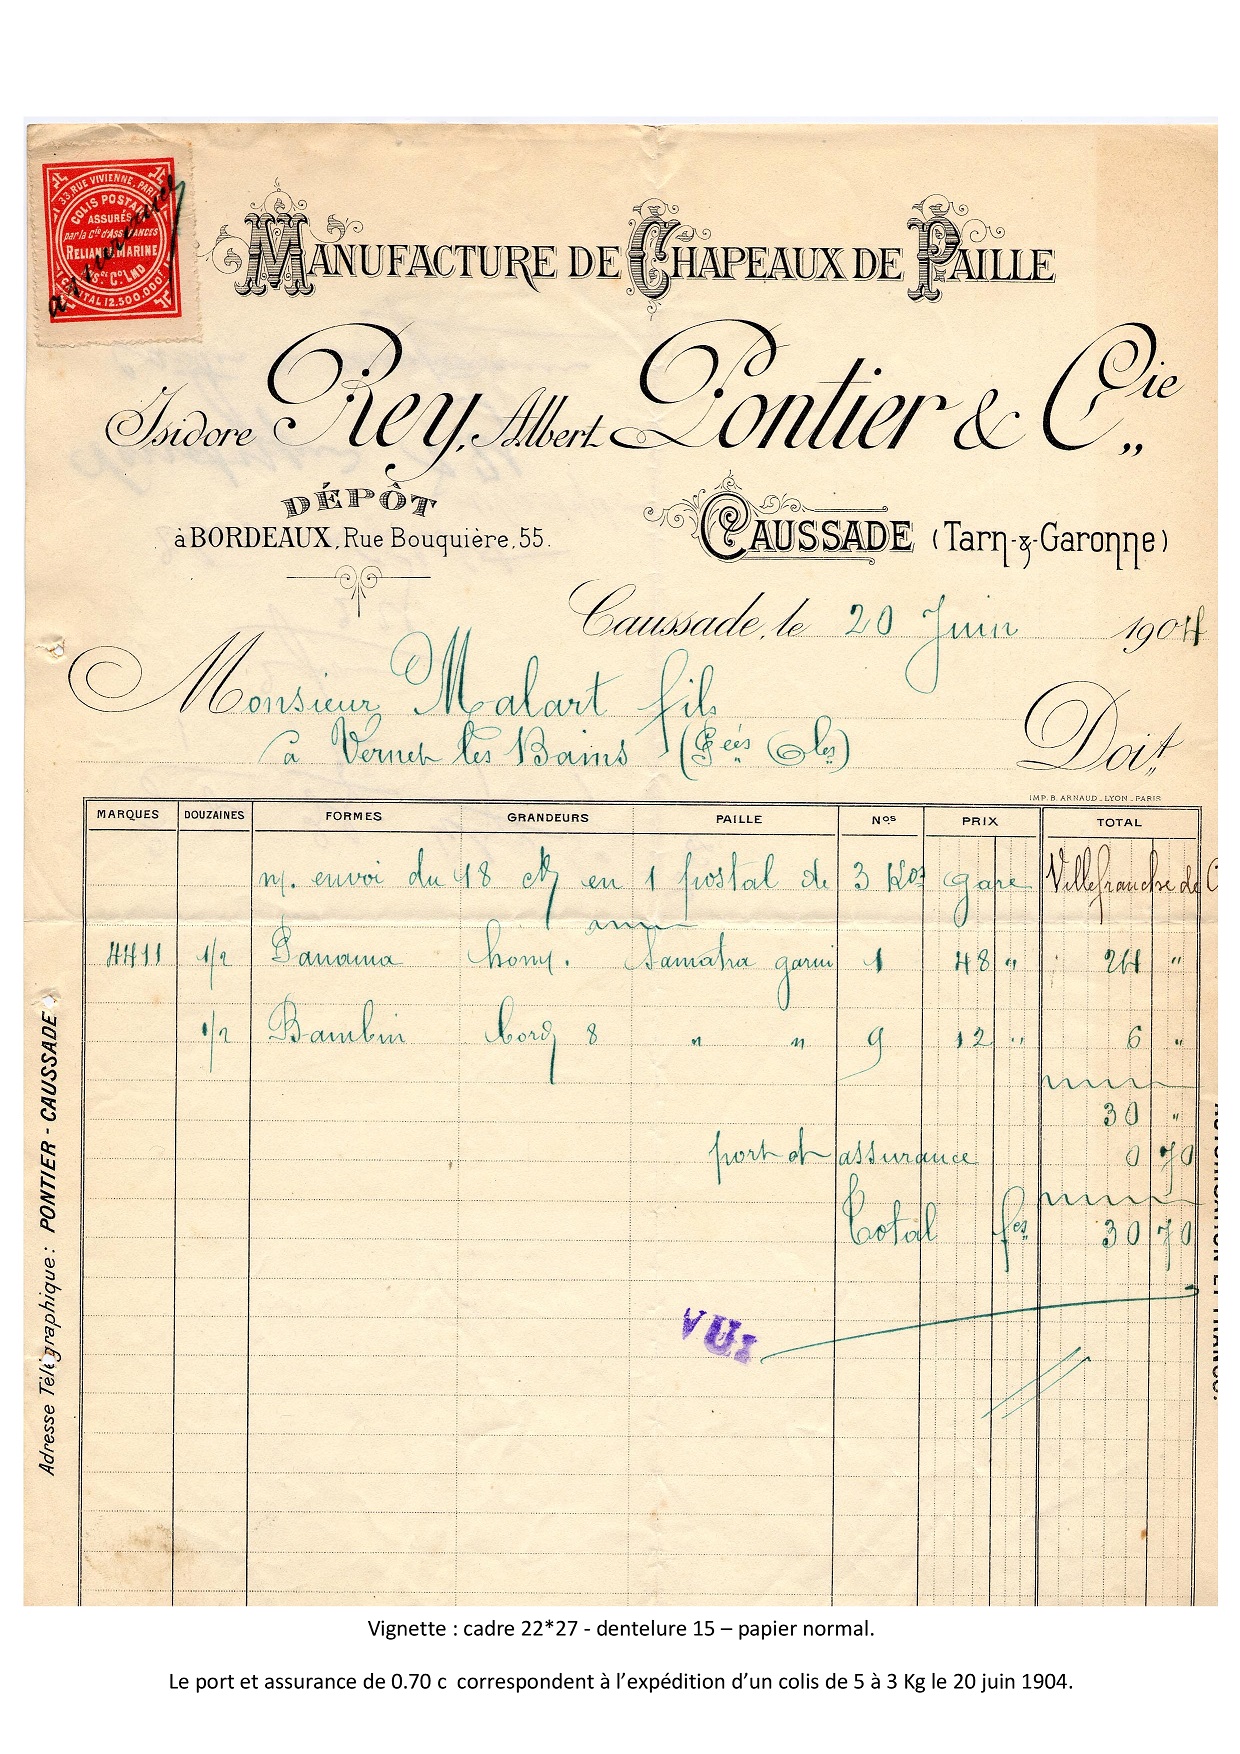 33, RUE VIVIENNE, PARIS
COLIS POSTAUX
ASSURÉS
par la Cie d'ASSURANCES
RELIANCE MARINE
INSce Co LMD
CAPITAL 12.500.000 F
assurance
MANUFACTURE DE CHAPEAUX DE PAILLE
Isidore Rey, Albert Pontier & Cie,,
DÉPÔT
à BORDEAUX, Rue Bouquière, 55.
CAUSSADE (Tarn-&-Garonne)
Caussade, le 20 Juin 1904
Monsieur Malart fils
à Vernet les Bains (Pées Oles)
Doit,,
IMP. B. ARNAUD - LYON - PARIS
MARQUES DOUZAINES FORMES GRANDEURS PAILLE Nos PRIX TOTAL
n/. envoi du 18 ct en 1 postal de 3 Kos gare Villefranche de C
4411 1/2 Panama hom. Samatra garni 1 48 " 24 "
1/2 Bambin 8 " " 9 12 " 6 "
30 "
port et assurance 0 70
Total fcs 30 70
VU
Adresse Télégraphique : PONTIER - CAUSSADE
Vignette : cadre 22*27 - dentelure 15 – papier normal.
Le port et assurance de 0.70 c correspondent à l’expédition d’un colis de 5 à 3 Kg le 20 juin 1904.